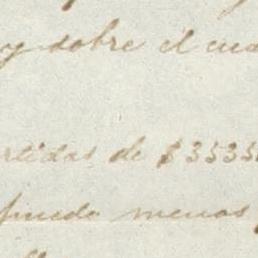 y sobre el cua
rtidas de $3535
puede menos